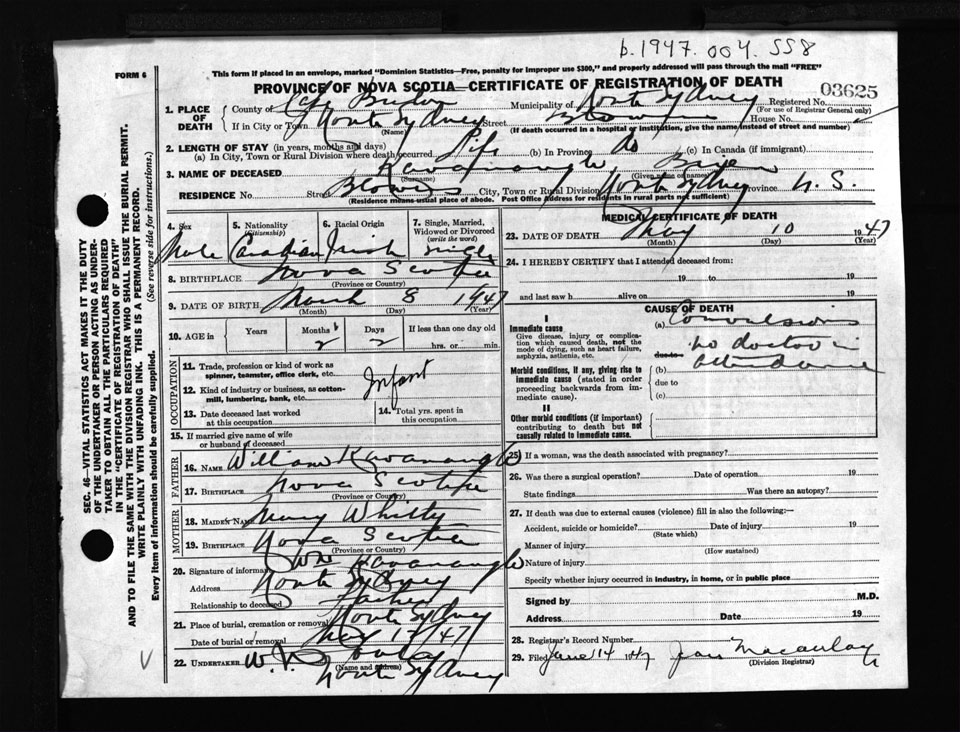 b.1947.004.558
FORM 6
This form if placed in an envelope, marked "Dominion Statistics—Free, penalty for improper use $300," and properly addressed will pass through the mail "FREE"
PROVINCE OF NOVA SCOTIA—CERTIFICATE OF REGISTRATION OF DEATH
03625
1. PLACE OF DEATH
County of Cape Breton Municipality of North Sydney Registered No.
(For use of Registrar General only)
If in City or Town North Sydney Street House No.
(Name) (If death occurred in a hospital or institution, give the name instead of street and number)
2. LENGTH OF STAY (in years, months and days)
(a) In City, Town or Rural Division where death occurred Life (b) In Province do (c) In Canada (if immigrant)
3. NAME OF DECEASED Kavanaugh Brian
(Given name or names)
RESIDENCE No. Street Blowers City, Town or Rural Division North Sydney Province N.S.
(Residence means usual place of abode. Post Office Address for residents in rural parts not sufficient)
4. Sex
Male
5. Nationality (Citizenship)
Canadian
6. Racial Origin
Irish
7. Single, Married, Widowed or Divorced (write the word)
Single
8. BIRTHPLACE Nova Scotia
(Province or Country)
9. DATE OF BIRTH March 8 1947
(Month) (Day) (Year)
10. AGE in Years Months Days If less than one day old
2 2 hrs. or min.
OCCUPATION
11. Trade, profession or kind of work as spinner, teamster, office clerk, etc.
Infant
12. Kind of industry or business, as cotton-mill, lumbering, bank, etc.
13. Date deceased last worked at this occupation
14. Total yrs. spent in this occupation
15. If married give name of wife or husband of deceased
FATHER
16. NAME William Kavanaugh
17. BIRTHPLACE Nova Scotia
(Province or Country)
MOTHER
18. MAIDEN NAME Mary Whitty
19. BIRTHPLACE Nova Scotia
(Province or Country)
20. Signature of informant Wm Kavanaugh
Address North Sydney
Relationship to deceased Father
21. Place of burial, cremation or removal North Sydney
Date of burial or removal May 12/47
22. UNDERTAKER W.
(Name and address)
North Sydney
MEDICAL CERTIFICATE OF DEATH
23. DATE OF DEATH May 10 1947
(Month) (Day) (Year)
24. I HEREBY CERTIFY that I attended deceased from:
19 to 19
and last saw h alive on 19
CAUSE OF DEATH
I
Immediate cause
Give disease, injury or complication which caused death, not the mode of dying, such as heart failure, asphyxia, asthenia, etc.
(a) Convulsions
due to
no doctor in
attendance
Morbid conditions, if any, giving rise to immediate cause (stated in order proceeding backwards from immediate cause).
(b)
due to
(c)
II
Other morbid conditions (if important) contributing to death but not causally related to immediate cause.
25. If a woman, was the death associated with pregnancy?
26. Was there a surgical operation? Date of operation 19
State findings Was there an autopsy?
27. If death was due to external causes (violence) fill in also the following:—
Accident, suicide or homicide? Date of injury 19
(State which)
Manner of injury
(How sustained)
Nature of injury
Specify whether injury occurred in industry, in home, or in public place
Signed by M.D.
Address Date 19
28. Registrar's Record Number
29. Filed June 14 1947 Jean Macaulay
(Division Registrar)
SEC. 46—VITAL STATISTICS ACT MAKES IT THE DUTY
OF THE UNDERTAKER OR PERSON ACTING AS UNDER-
TAKER TO OBTAIN ALL THE PARTICULARS REQUIRED
IN THE "CERTIFICATE OF REGISTRATION OF DEATH"
AND TO FILE THE SAME WITH THE DIVISION REGISTRAR WHO SHALL ISSUE THE BURIAL PERMIT.
WRITE PLAINLY WITH UNFADING INK. THIS IS A PERMANENT RECORD.
Every item of information should be carefully supplied.
(See reverse side for instructions.)